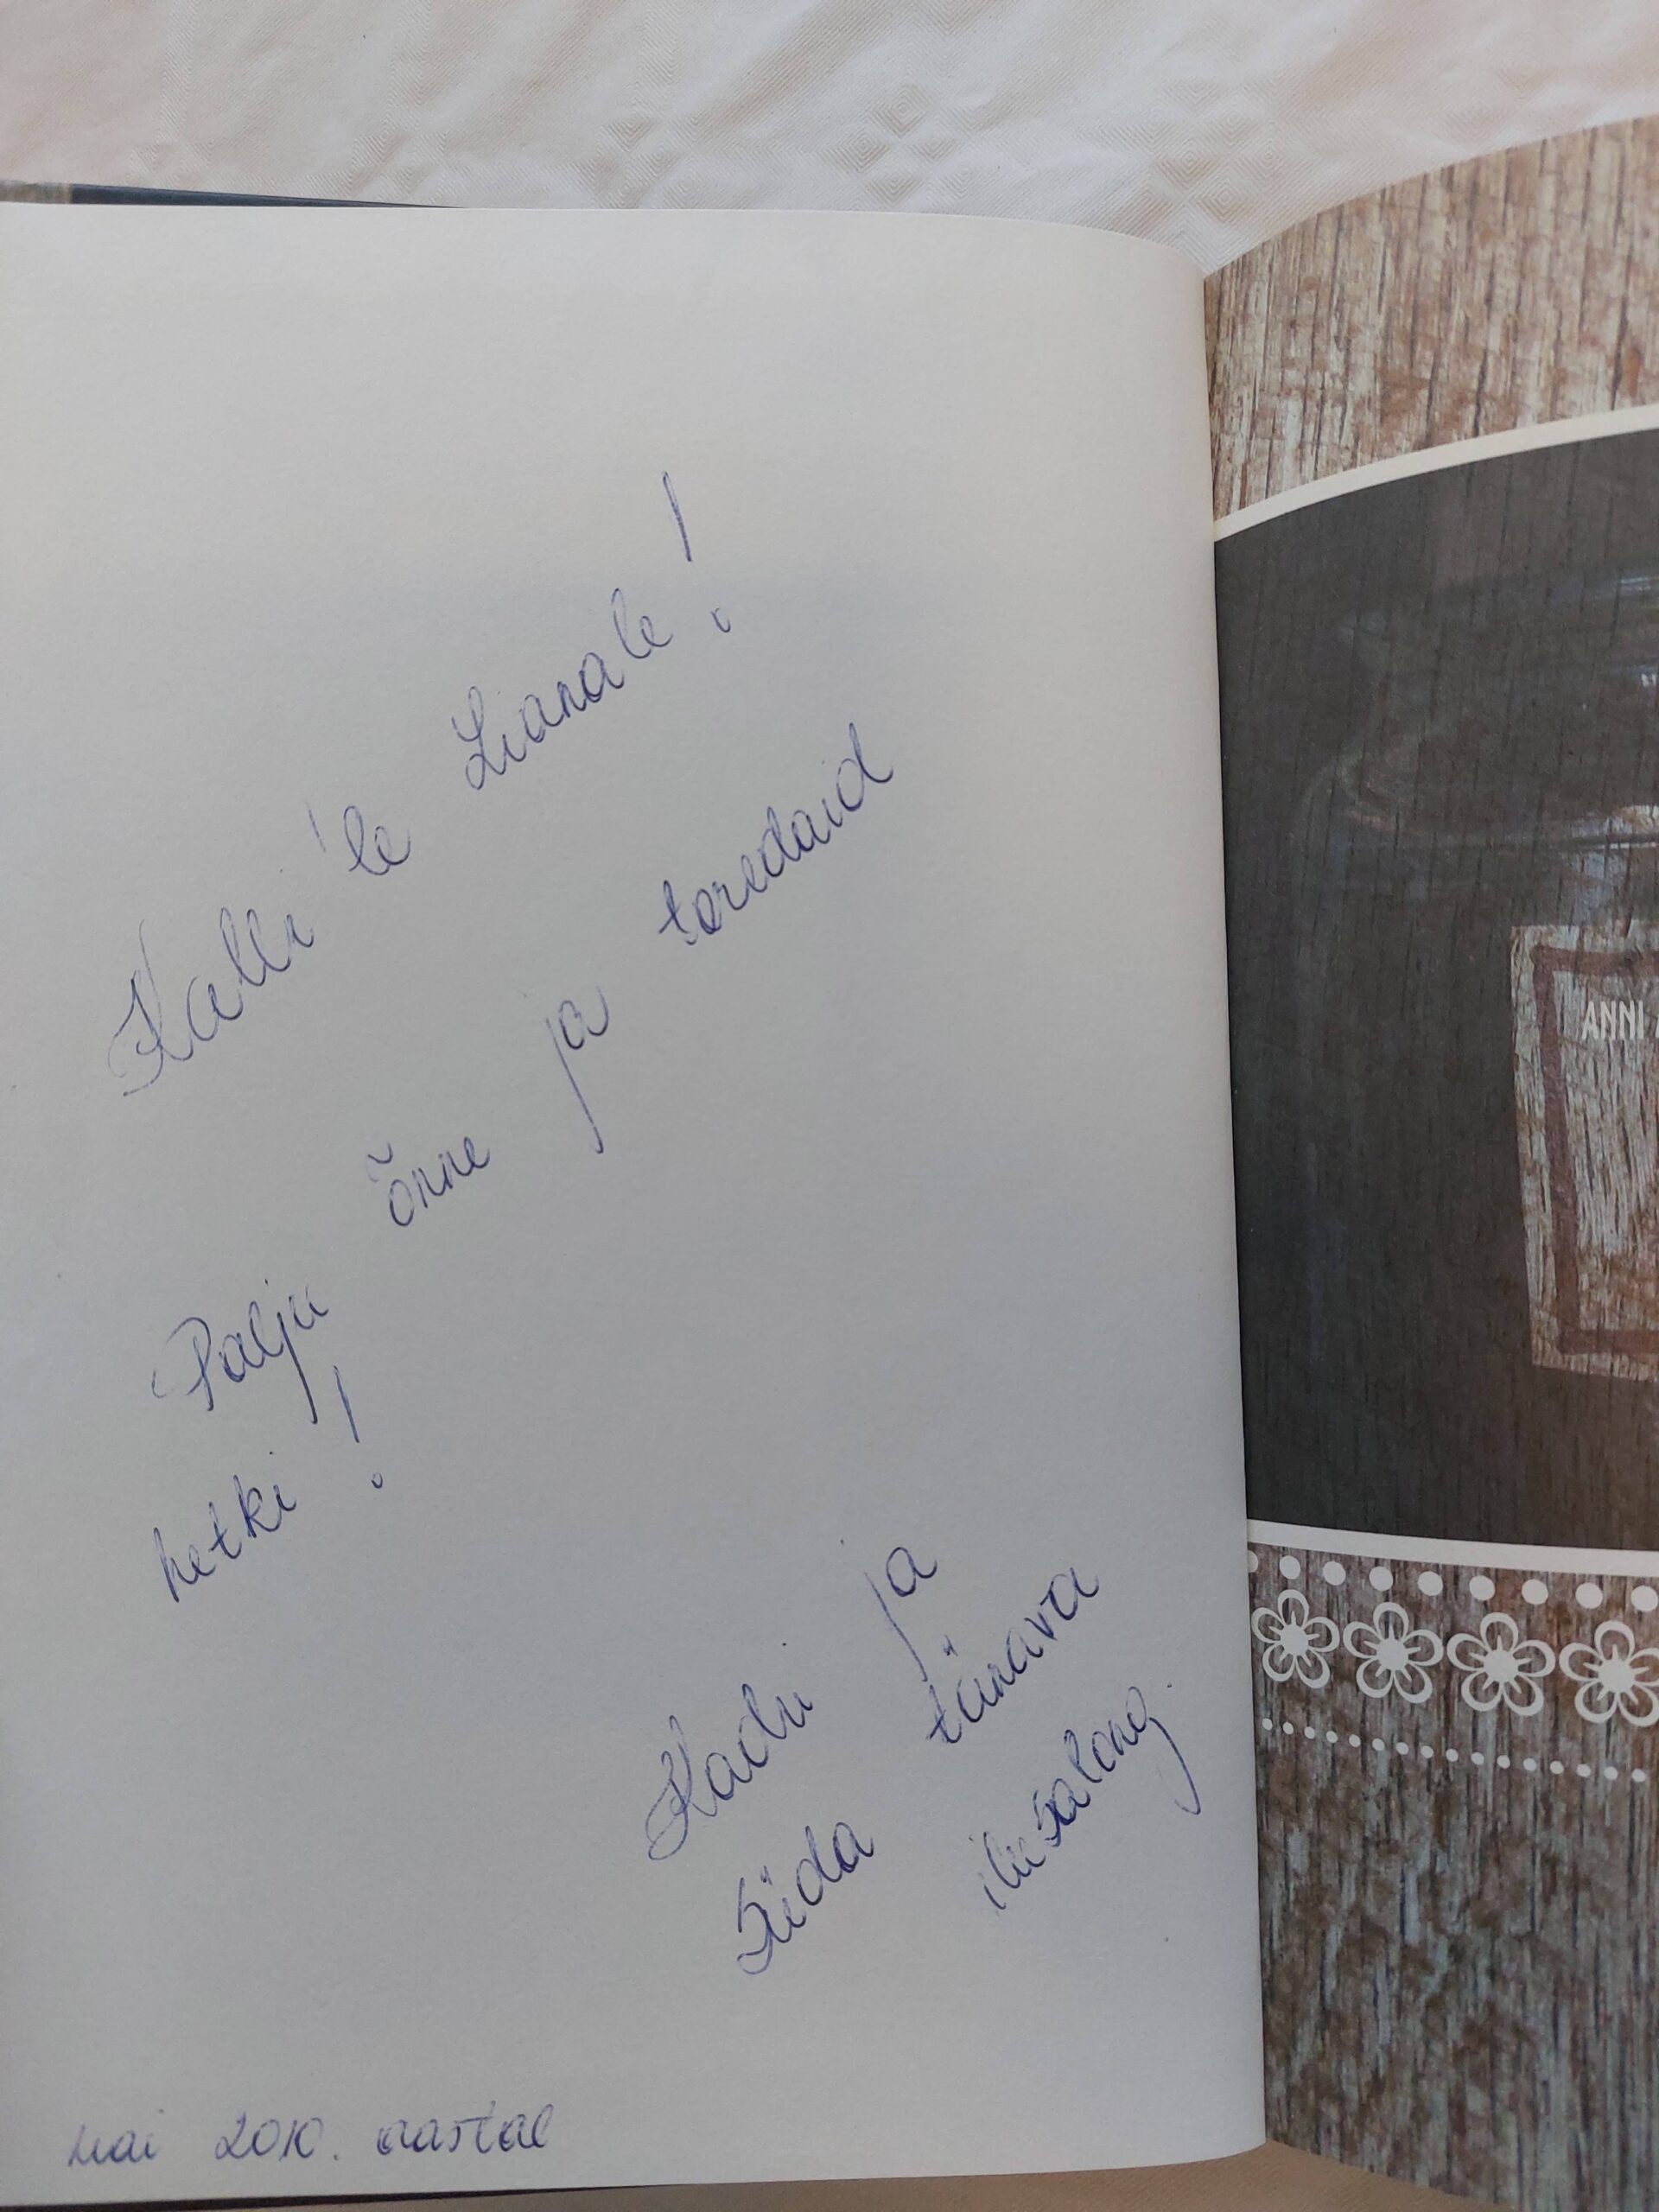 Kalli'le Lianale!
Palju õnne ja toredaid
hetki!
Kadri ja
Süda tänava
ilusalong.
mai 2010. aastal
ANNI